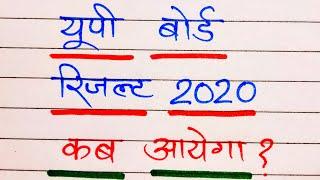 यूपी बोर्ड
रिजल्ट 2020
कब आयेगा ?